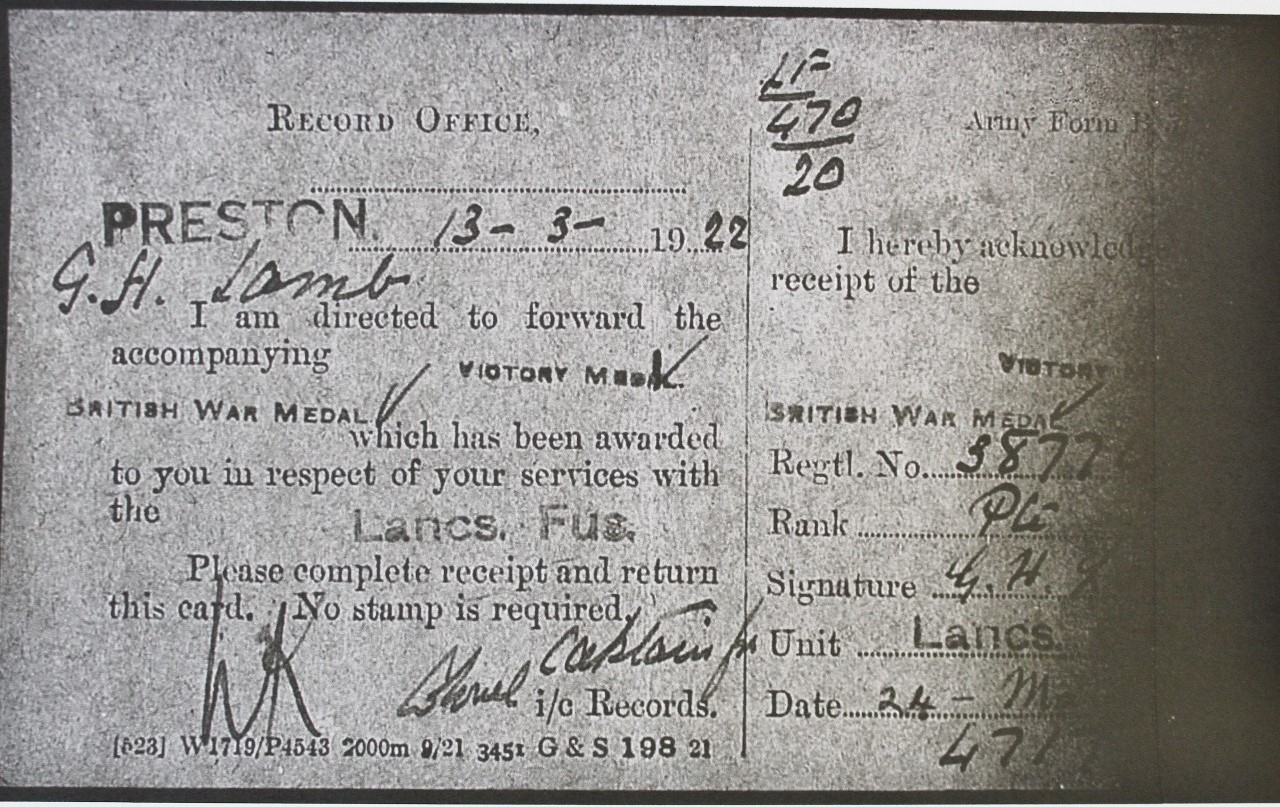 RECORD OFFICE,
PRESTON. 13-3-1922
G.H. Lamb
I am directed to forward the
accompanying
VICTORY MEDAL.
BRITISH WAR MEDAL
which has been awarded
to you in respect of your services with
the
Lancs. Fus.
Please complete receipt and return
this card. No stamp is required.
Captain for
Colonel
i/c Records.
[523] W1719/P4543 2000m 9/21 3451 G & S 198 21
LF
470
20
Army Form
I hereby acknowledge
receipt of the
VICTORY
BRITISH WAR MEDAL
Regtl. No. 3877
Rank Pte
Signature G. H.
Unit Lancs.
Date 24 -